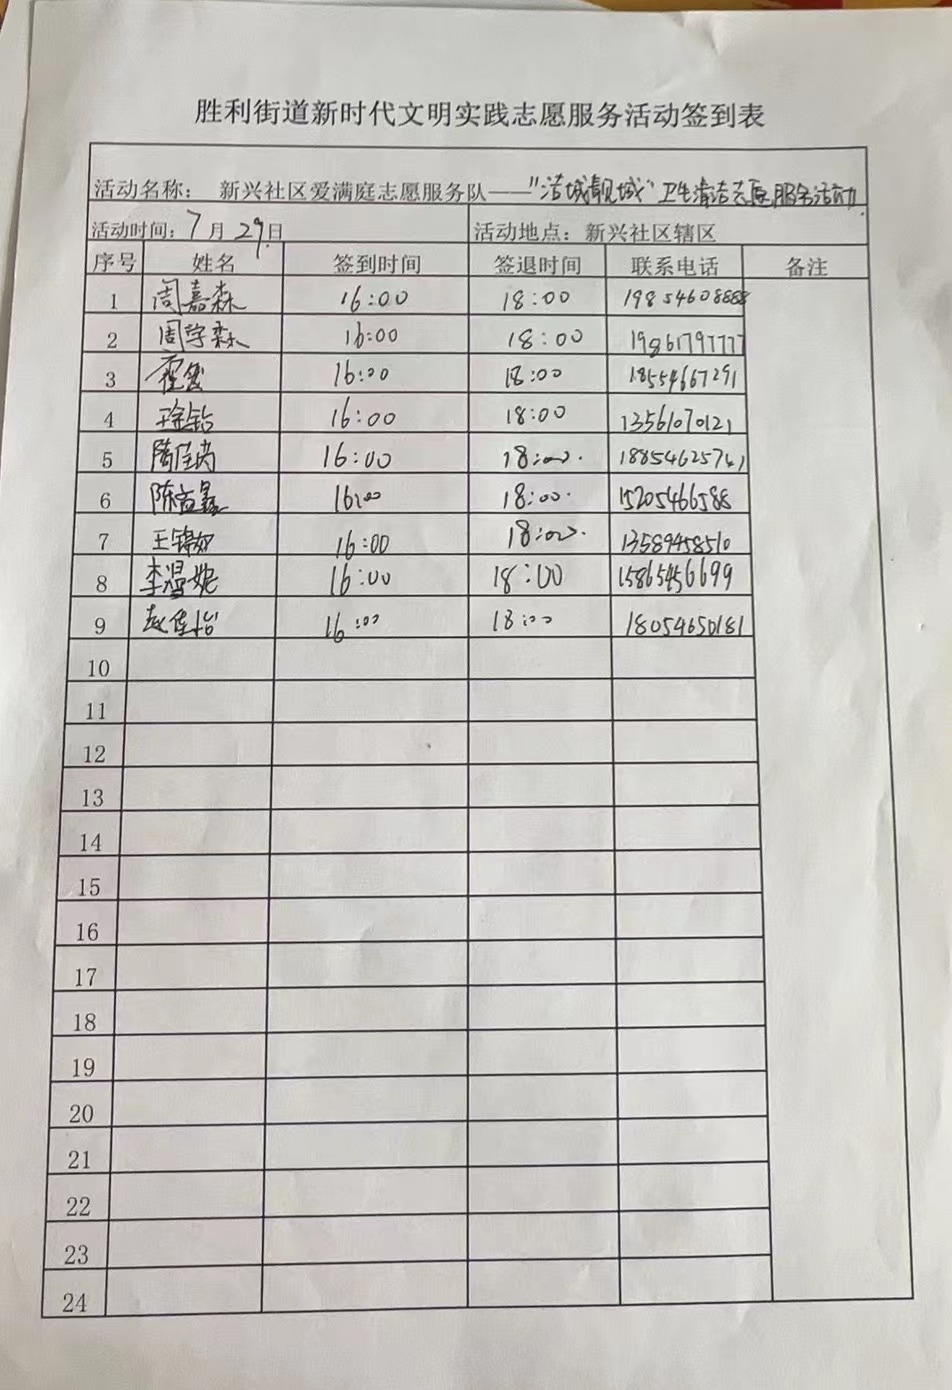 胜利街道新时代文明实践志愿服务活动签到表
活动名称： 新兴社区爱满庭志愿服务队——"洁城靓城"卫生清洁志愿服务活动.
活动时间：7月29日 活动地点：新兴社区辖区
序号 姓名 签到时间 签退时间 联系电话 备注
1 周嘉森 16:00 18:00 19854608888
2 周学森 16:00 18:00 19861797777
3 16:00 18:00 18554667291
4 16:00 18:00 13561070121
5 16:00 18:00. 18854625741
6 陈益鑫 16:00 18:00. 15205466588
7 王锦如 16:00 18:00. 13589458510
8 李温妮 16:00 18:00 15865456699
9 赵佳怡 16:00 18:00 18054650181
10
11
12
13
14
15
16
17
18
19
20
21
22
23
24